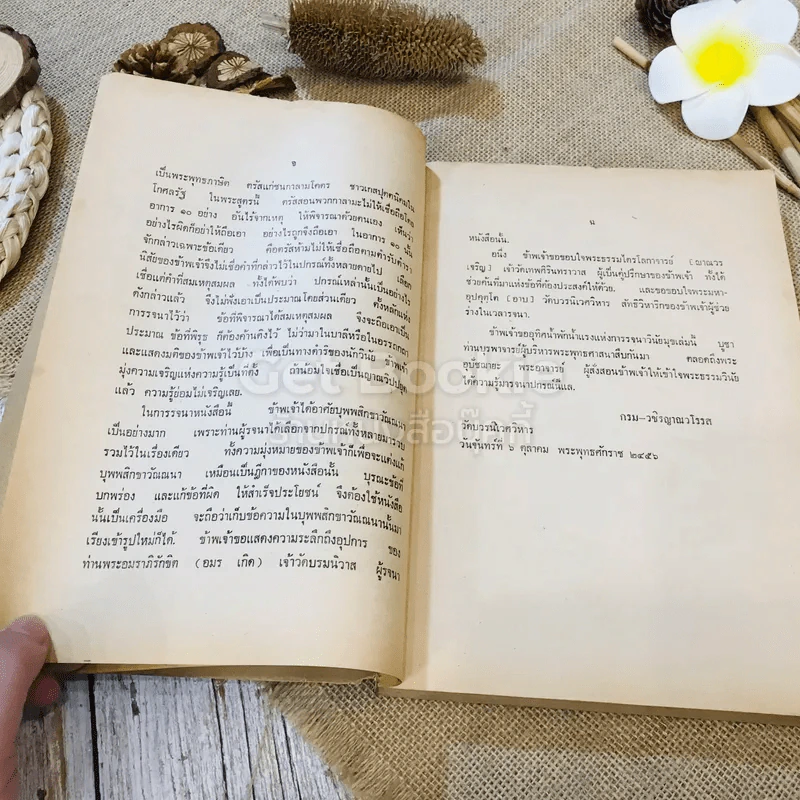 ช
เป็นพระพุทธภาษิต ตรัสแก่ชนกาลามโคตร ชาวเกสปุตตนิคมใน
โกศลรัฐ ในพระสูตรนี้ ตรัสสอนพวกกาลามะไม่ให้เชื่อถือโดย
อาการ ๑๐ อย่าง อันไร้จากเหตุ ให้พิจารณาด้วยตนเอง เห็นว่า
อย่างไรผิดก็อย่าให้ถือเอา อย่างไรถูกจึงถือเอา ในอาการ ๑๐ นั้น
จักกล่าวเฉพาะข้อเดียว คือตรัสห้ามไม่ให้เชื่อถือตามตำรับตำรา
นิสัยของข้าพเจ้าจึงไม่เชื่อคำที่กล่าวไว้ในปกรณ์ทั้งหลายดายไป เลือก
เชื่อแต่คำที่สมเหตุสมผล ทั้งได้พบว่า ปกรณ์เหล่านั้นเป็นอย่างไร
ดังกล่าวแล้ว จึงไม่พึงเอาเป็นประมาณโดยส่วนเดียว ตั้งหลักแห่ง
การรจนาไว้ว่า ข้อที่พิจารณาได้สมเหตุสมผล จึงจะถือเอาเป็น
ประมาณ ข้อที่พิรุธ ก็ต้องค้านติงไว้ ไม่ว่ามาในบาลีหรือในอรรถกถา
และแสดงมติของข้าพเจ้าไว้บ้าง เพื่อเป็นทางดำริของนักวินัย ข้าพเจ้า
มุ่งความเจริญแห่งความรู้เป็นที่ตั้ง ถ้านอมใจเชื่อเป็นญาณวิปปยุต
แล้ว ความรู้ย่อมไม่เจริญเลย.
ในการรจนาหนังสือนี้ ข้าพเจ้าได้อาศัยบุพพสิกขาวัณณนา
เป็นอย่างมาก เพราะท่านผู้รจนาได้เลือกจากปกรณ์ทั้งหลายมารวบ
รวมไว้ในเรื่องเดียว ทั้งความมุ่งหมายของข้าพเจ้าก็เพื่อจะแต่งแก้
บุพพสิกขาวัณณนา เหมือนเป็นฎีกาของหนังสือนั้น บูรณะข้อที่
บกพร่อง และแก้ข้อที่ผิด ให้สำเร็จประโยชน์ จึงต้องใช้หนังสือ
นั้นเป็นเครื่องมือ จะถือว่าเก็บข้อความในบุพพสิกขาวัณณนานั้นมา
เรียงเข้ารูปใหม่ก็ได้. ข้าพเจ้าขอแสดงความระลึกถึงอุปการ ของ
ท่านพระอมราภิรักขิต (อมร เกิด) เจ้าวัดบรมนิวาส ผู้รจนา
ฌ
หนังสือนั้น.
อนึ่ง ข้าพเจ้าขอขอบใจพระธรรมไตรโลกาจารย์ (ญาณวร
เจริญ) เจ้าวัดเทพศิรินทราวาส ผู้เป็นคู่ปรึกษาของข้าพเจ้า ทั้งได้
ช่วยค้นที่มาแห่งข้อที่ต้องประสงค์ให้ด้วย. และขอขอบใจพระมหา-
อุปคุตโต (อาบ) วัดบวรนิเวศวิหาร สัทธิวิหาริกของข้าพเจ้าผู้ช่วย
ร่างในเวลารจนา.
ข้าพเจ้าขออุทิศน้ำพักน้ำแรงแห่งการรจนาวินัยมุขเล่มนี้ บูชา
ท่านบุรพาจารย์ผู้บริหารพระพุทธศาสนาสืบกันมา ตลอดถึงพระ
อุปัชฌายะ พระอาจารย์ ผู้สั่งสอนข้าพเจ้าให้เข้าใจพระธรรมวินัย
ได้ความรู้มารจนาปกรณ์นี้แล.
กรม-วชิรญาณวโรรส
วัดบวรนิเวศวิหาร
วันจันทร์ที่ ๖ ตุลาคม พระพุทธศักราช ๒๔๕๖
Get Bookie
ร้านหนังสือกุ๊กกี้